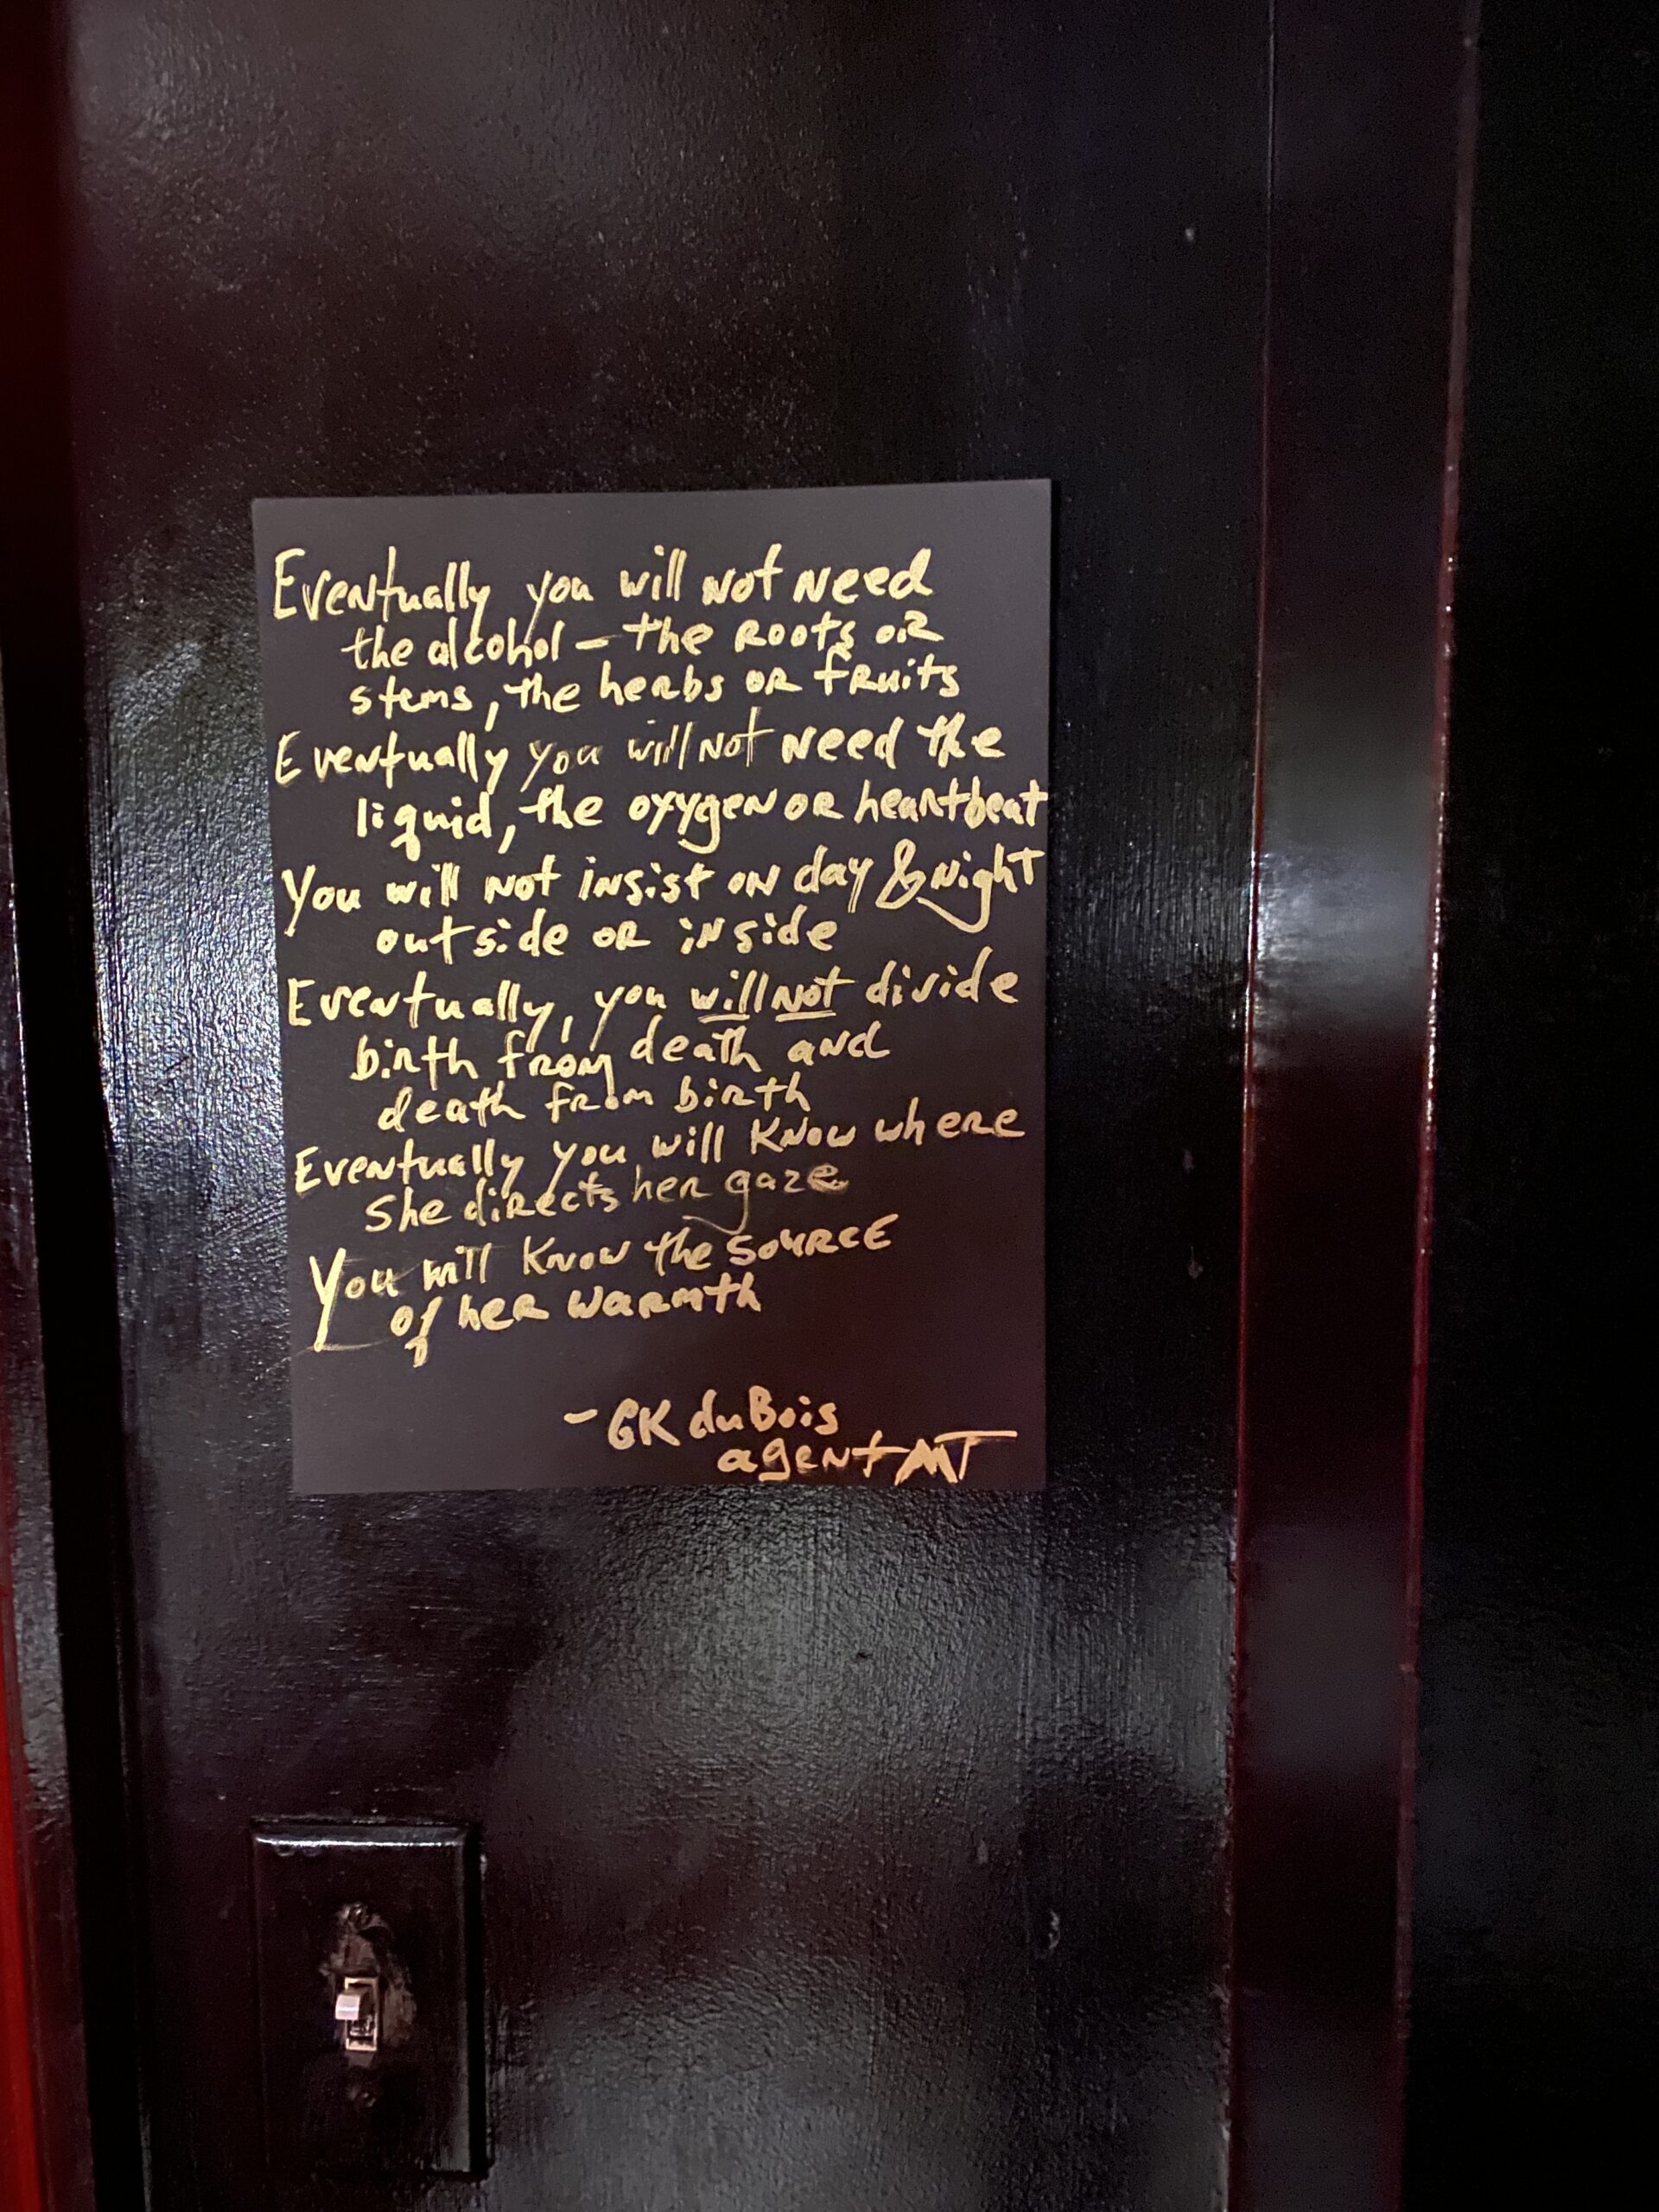 Eventually you will not need
the alcohol – the roots or
stems, the herbs or fruits
Eventually you will not need the
liquid, the oxygen or heartbeat
You will not insist on day & night
outside or inside
Eventually, you will not divide
birth from death and
death from birth
Eventually you will know where
she directs her gaze
You will know the source
of her warmth
– GK duBois
agent MT